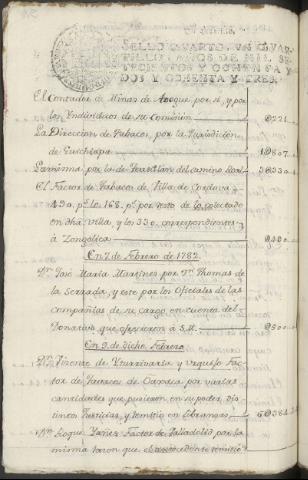 SELLO QVARTO, VN QVAR-
TILLO, AÑOS DE MIL SE-
TECIENTOS Y OCHENTA Y
DOS Y OCHENTA Y TRES.
El Contador de Minas de Azogue, por sí, y por
los Yndividuos de su Comision
La Direccion de Tabacos, por la Jurisdiccion
de
La misma, por la de del camino Real
El Factor de Tabacos de Villa de Cordova
430. p.s los 168. p.s por resto de lo colectado
en dha Villa, y los 330. correspondientes
à Zongolica
En 7. de Febrero de 1782.
D.n José Maria Martinez por D.n Thomas de
la Serrada, y este por los Oficiales de las
Compañias de su cargo en cuenta del
Donativo que ofrecieron à S.M.
En 9. de dicho Febrero
D.n Vicente de Yturrivarria y Urquijo Fac-
tor de Tabacos de Oaxaca por varias
cantidades que pusieron en su poder, dis-
tintas Justicias, y remitio en Libranzas
D.n Roque Yañez Factor de Valladolid, por la
misma razon que el antecedente remitió